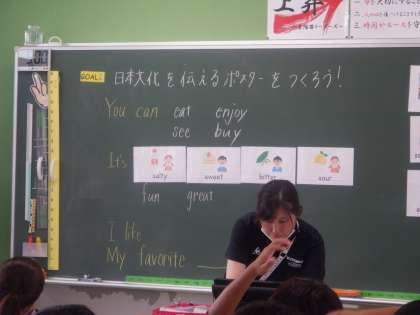 上昇
GOAL: 日本文化を伝えるポスターをつくろう!
You can eat enjoy
see buy
It's salty sweet bitter sour
fun great
I like
My favorite ___